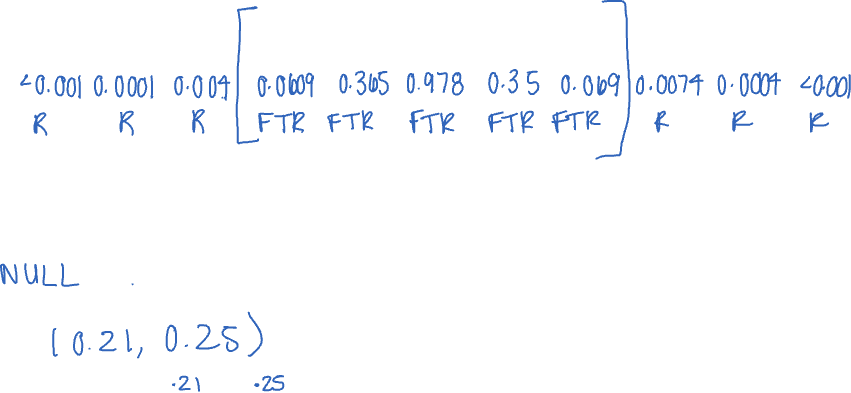 <0.001 0.0001 0.004 [ 0.0609 0.365 0.978 0.35 0.069 ] 0.0074 0.0004 <0.001
R R R FTR FTR FTR FTR FTR R R R
NULL
(0.21, 0.25)
.21 .25